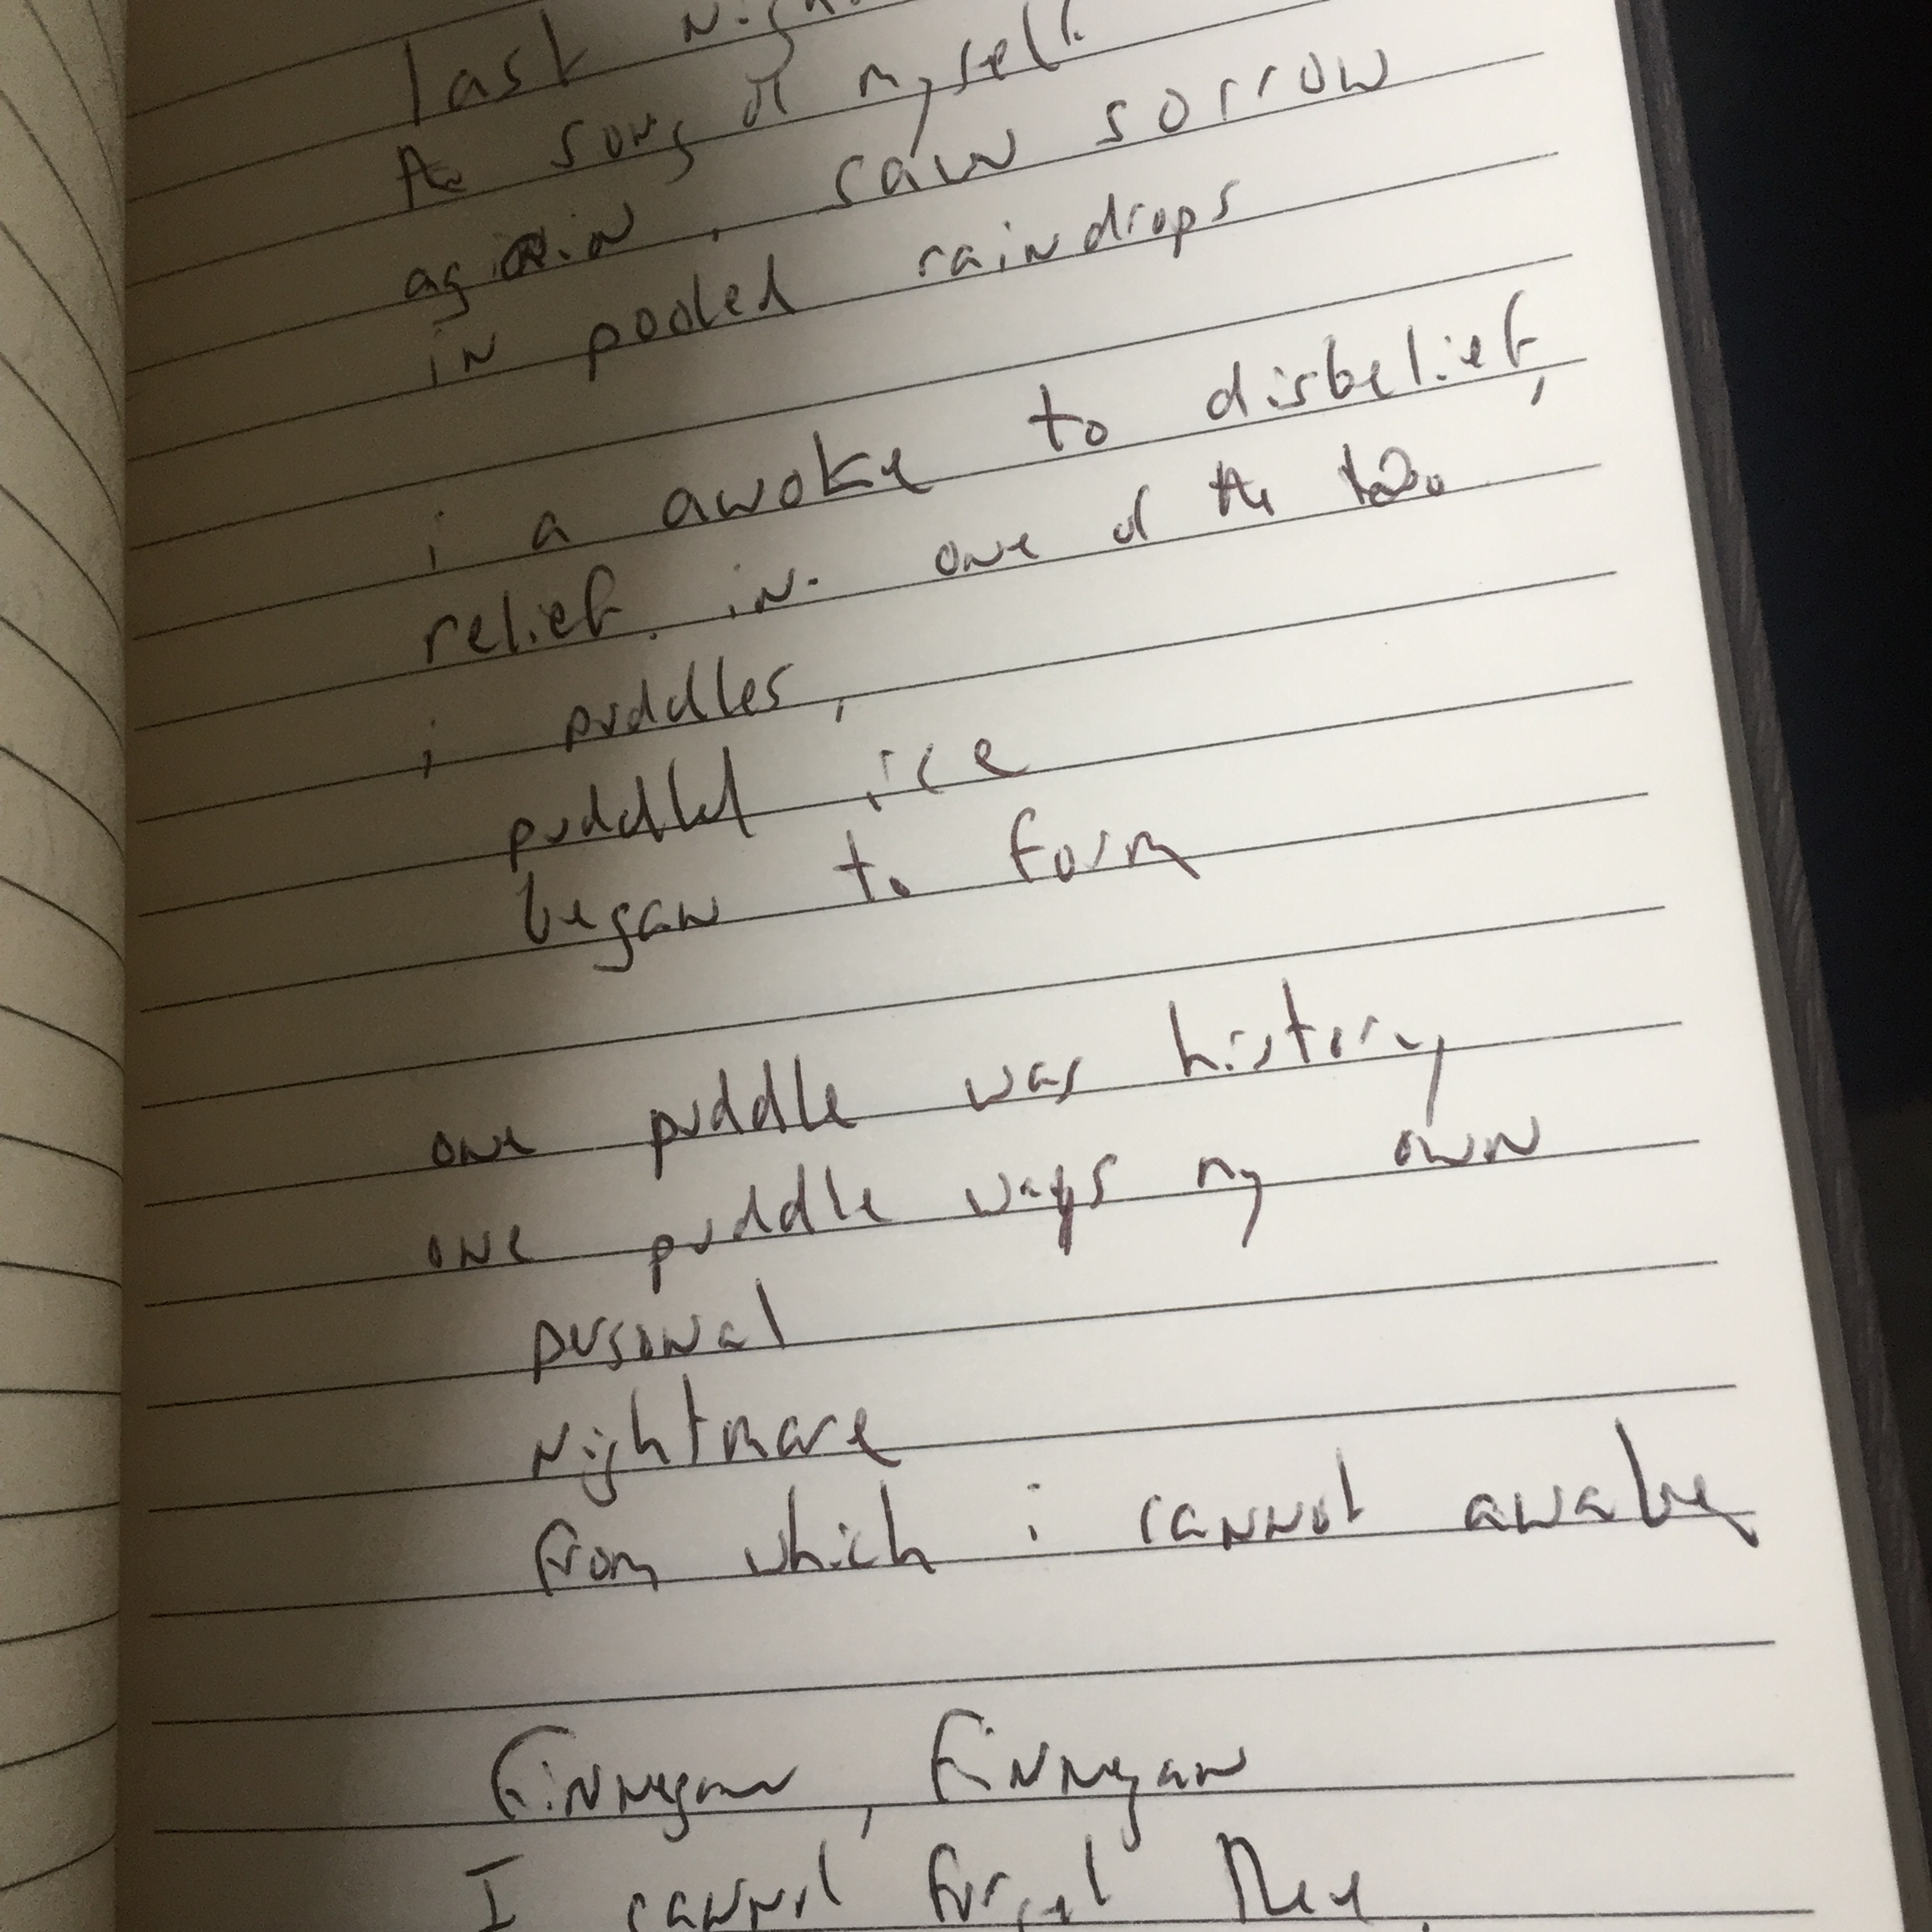 last night
the song of myself
again. saw sorrow
in pooled raindrops
i a awoke to disbelief,
relief. in. one of the two
i puddles,
puddled ice
began to form
one puddle was history
one puddle was my own
personal
nightmare
from which i cannot awake
Finnegan, Finnegan
I cannot forget Thee.